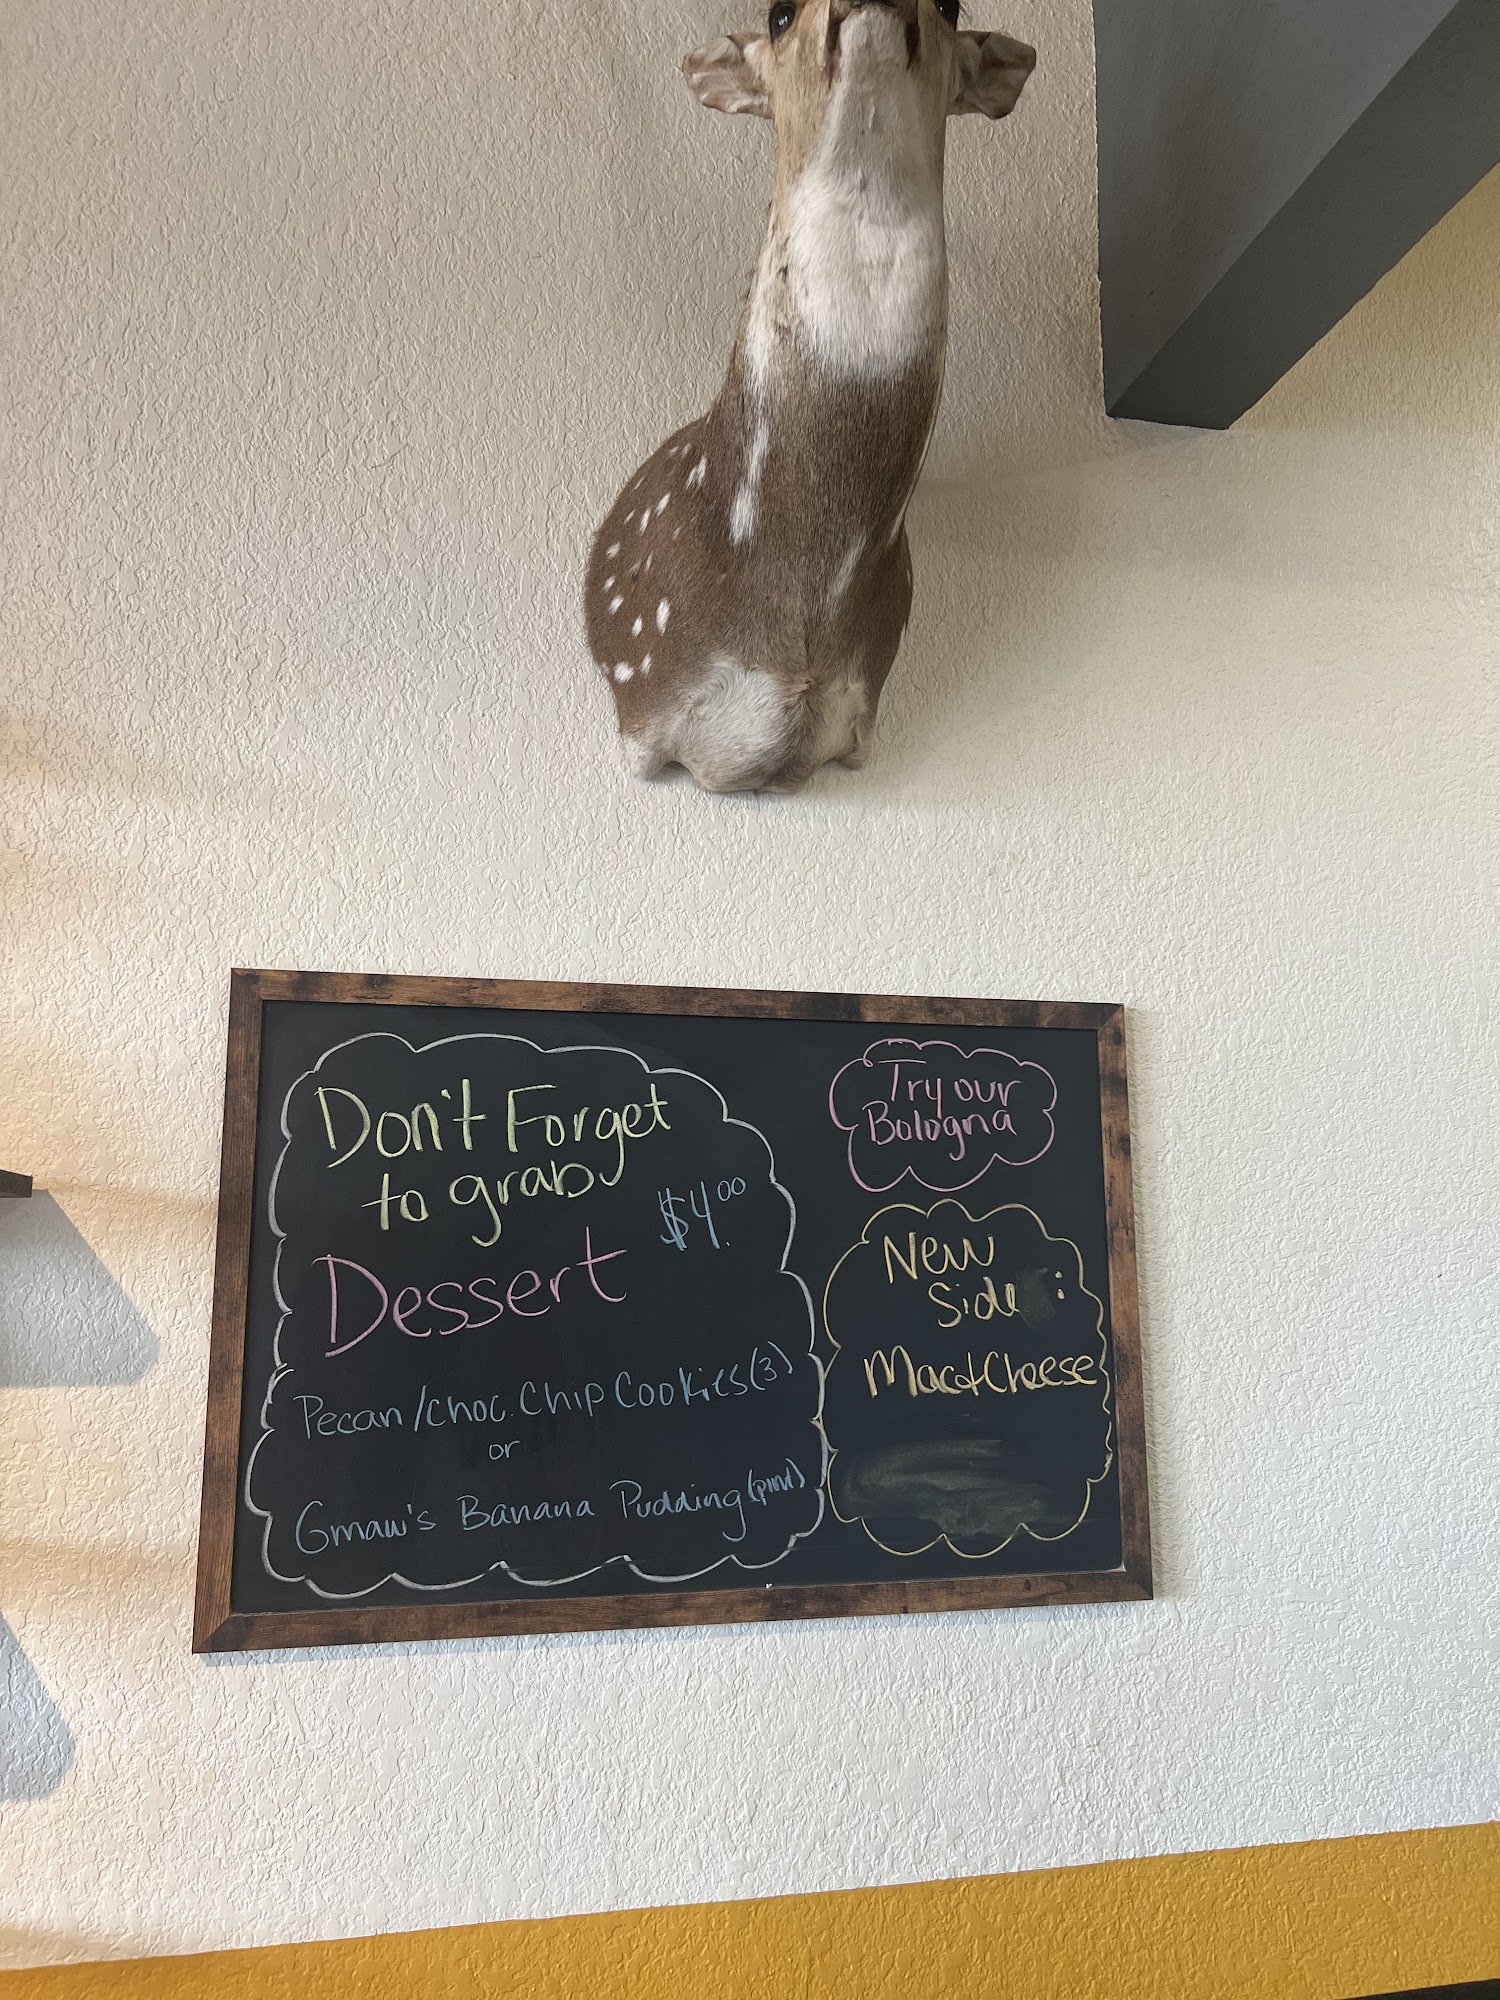 Don't Forget
to grab
Dessert $4.00
Pecan/choc. Chip Cookies (3)
or
Gmaw's Banana Pudding (pint)
Try our
Bologna
New
Side :
Mac+Cheese